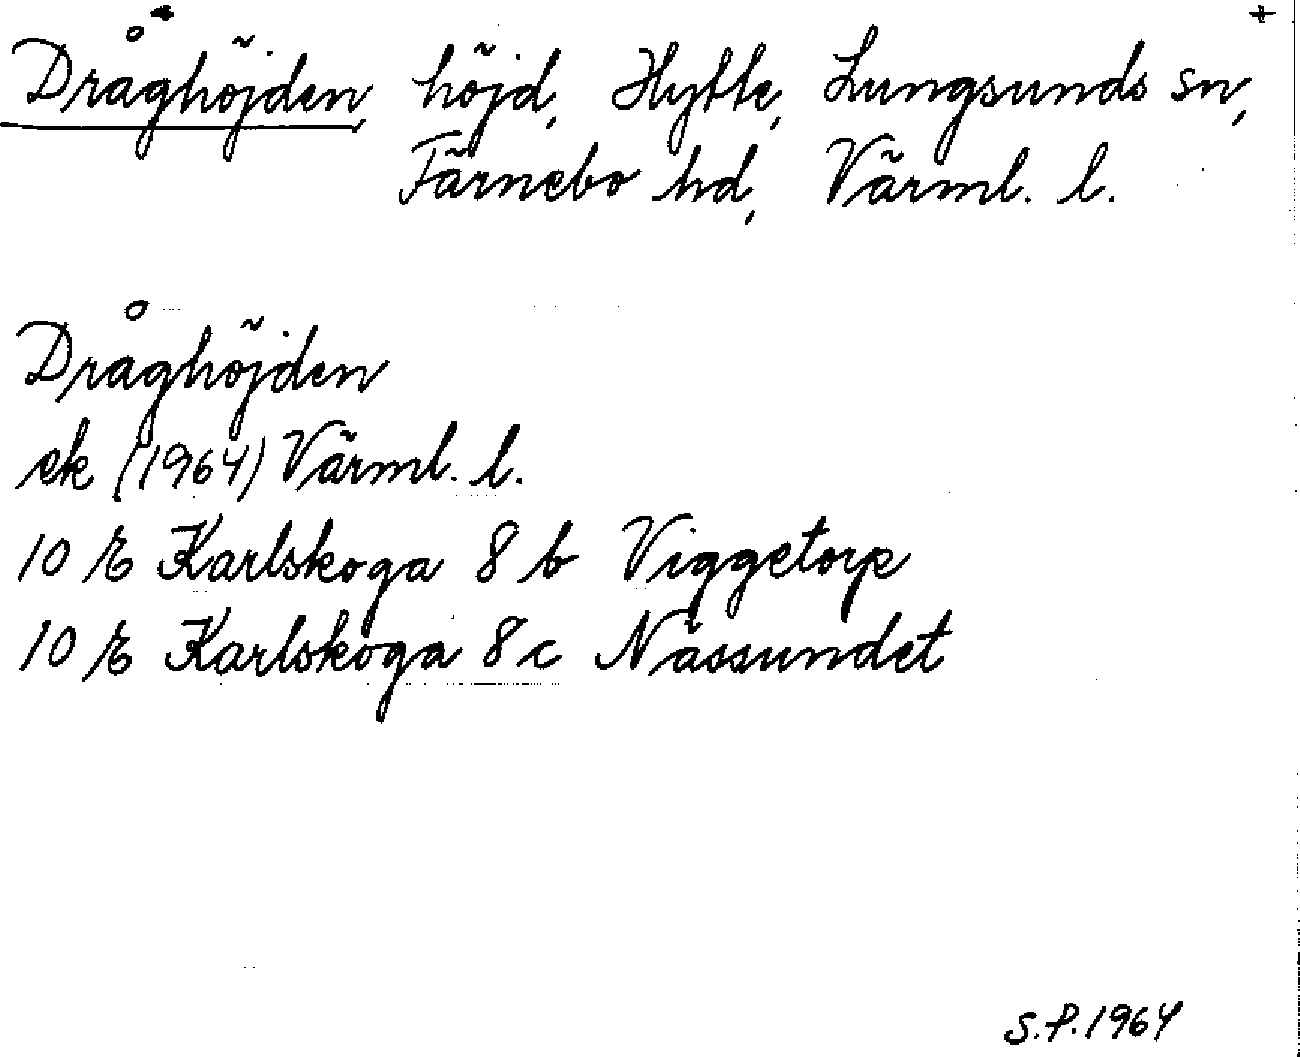 Dråghöjden, höjd, Hytte, Lungsunds sn, +
Färnebo hd, Värml. l.
Dråghöjden
ek (1964) Värml. l.
10 E Karlskoga 8 b Viggetorp
10 E Karlskoga 8 c Nässundet
S.P. 1964